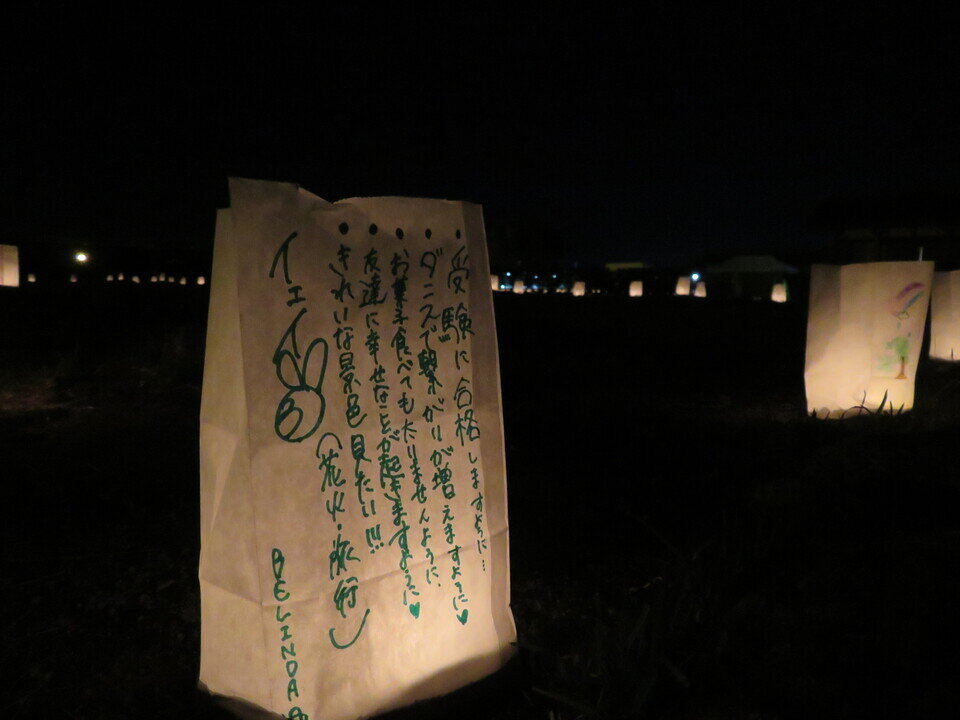 ・受験に合格しますように…
・ダニスで繋がりが増えますように♥
・お菓子食べてもたりませんように、
・友達に幸せなことが起きますように♥
・きれいな景色見たい!!!
(花火・旅行)
イェイ
BELINDA